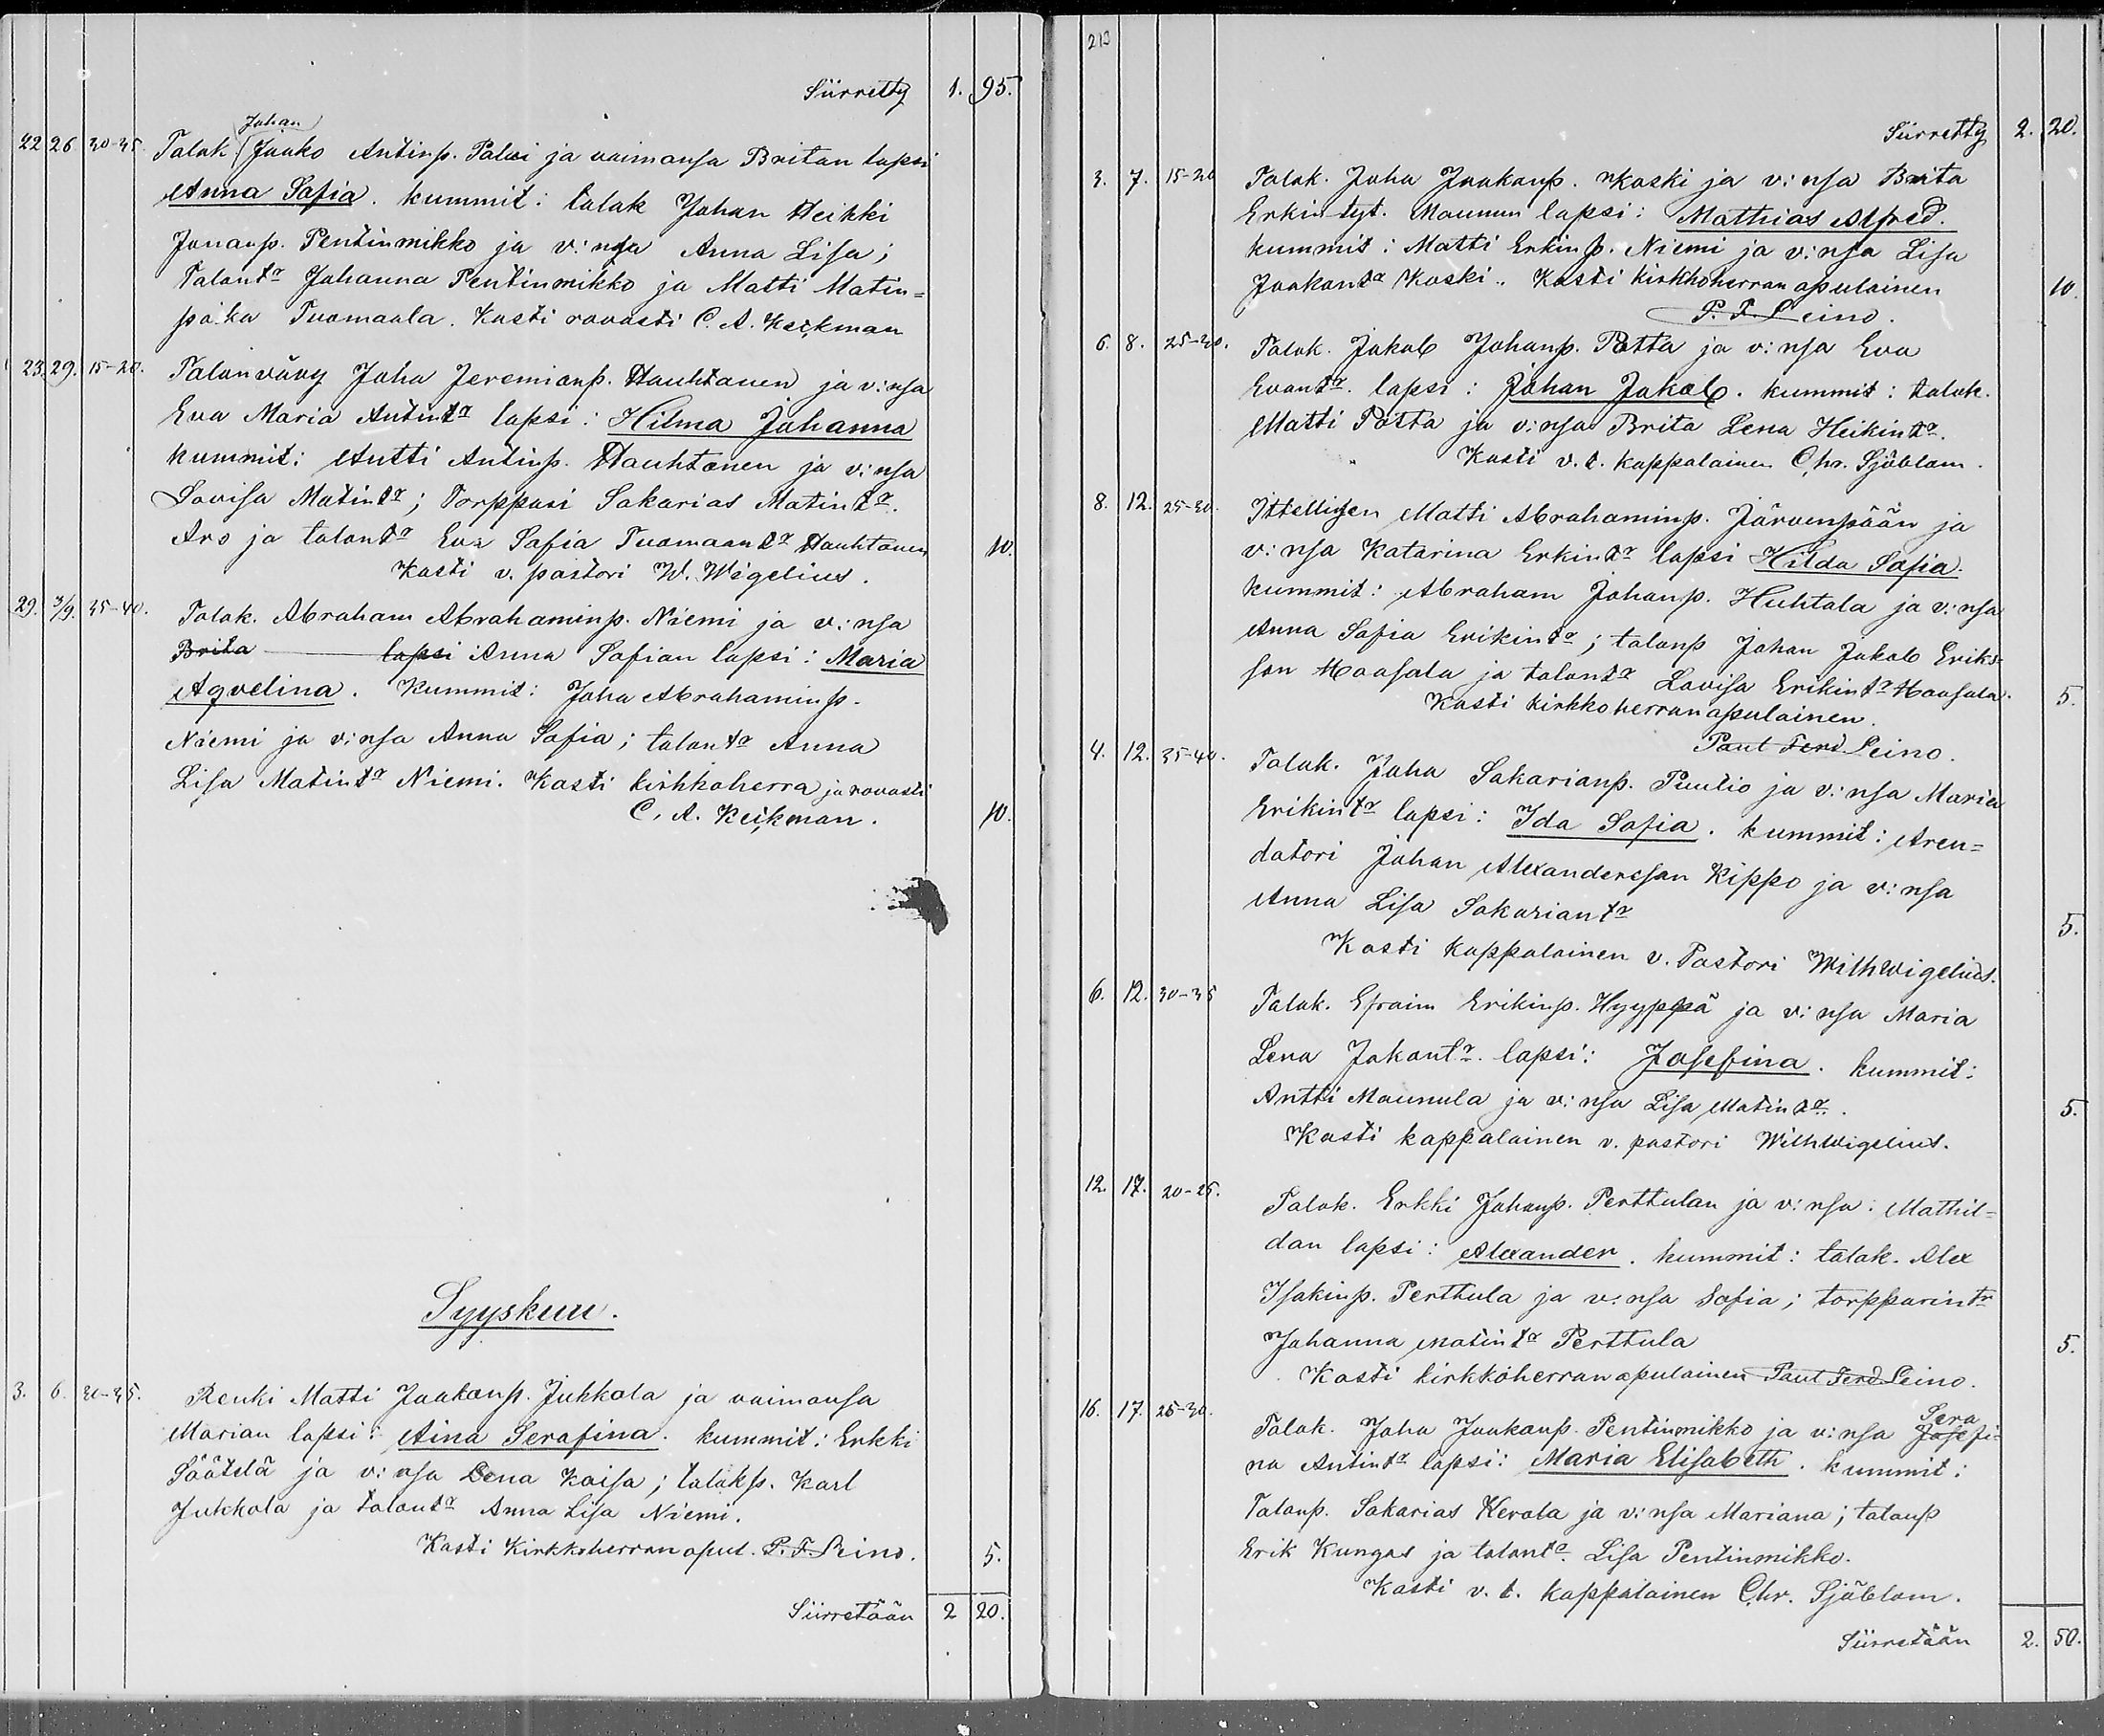 Siirretty 1. 95.
Johan
22 26 30-35. Talok. Jaako Antinp. Palvi ja vaimonsa Britan lapsi
Anna Sofia. kummit: talok Johan Heikki
Jonanp. Pentinmikko ja v:nsa Anna Lisa;
Talontr Johanna Pentinmikko ja Matti Matin=
poika Tuomaala. Kasti rovasti C. A. Keckman
23. 29. 15-20. Talonvävy Juho Jeremianp. Hauhtanen ja v:nsa
Eva Maria Antintr lapsi: Hilma Johanna
kummit: Antti Antinp. Hauhtonen ja v:nsa
Lovisa Matintr; Torppari Sakarias Matintr.
Aro ja talontr Eva Sofia Tuomaantr Hauhtonen 10.
Kasti v. pastori W. Wigelius.
29. 3/9. 35-40. Talok. Abraham Abrahaminp. Niemi ja v:nsa
Brita lapsi Anna Sofian lapsi: Maria
Aqvelina. Kummit: Juho Abrahaminp.
Niemi ja v:nsa Anna Sofia; talontr Anna
Lisa Matintr Niemi. Kasti kirkkoherra ja rovasti
C. A. Keckman. 10.
Syyskuu.
3. 6. 30-35. Renki Matti Jaakonp. Jukkola ja vaimonsa
Marian lapsi: Aina Serafina. kummit: Erkki
Säätelä ja v:nsa Lena Kaisa; talokp. Karl
Jukkola ja talontr Anna Lisa Niemi.
Kasti Kirkkoherran apul. P. F. Leino. 5.
Siirretään 2 20.
213
Siirretty 2. 20.
3. 7. 15-20 Talok. Juho Jaakonp. Koski ja v:nsa Brita
Erkin tyt. Maunun lapsi: Mathias Alfred.
kummit: Matti Erkinp. Niemi ja v:nsa Lisa
Jaakontr Koski.. Kasti Kirkkoherran apulainen 10.
P. F. Leino.
6. 8. 25-30. Talok. Jakob Johanp. Potta ja v:nsa Eva
Evantr. lapsi: Johan Jakob. kummit: talok.
Matti Potta ja v:nsa Brita Lena Heikintr.
Kasti v. t. kappalainen Chr. Sjöblom.
8. 12. 25-30. Ittellisen Matti Abrahaminp. Järvenpään ja
v:nsa Katarina Erkintr lapsi Hilda Sofia.
kummit: Abraham Johanp. Huhtala ja v:nsa
Anna Sofia Erikintr; talonp Johan Jakob Eriks=
son Haasala ja talontr Lovisa Erikintr Haasala. 5.
Kasti kirkkoherran apulainen.
Paul Ferd. Leino.
4. 12. 35-40. Talok. Juho Sakarianp. Puutio ja v:nsa Maria
Erikintr lapsi: Ida Sofia. kummit: Aren=
datori Johan Alexandersson Kippo ja v:nsa
Anna Lisa Sakariantr 5.
Kasti kappalainen v. Pastori Wilh Wigelius.
6. 12. 30-35 Talok. Efraim Erikinp. Hyyppä ja v:nsa Maria
Lena Jakontr. lapsi: Josefina. kummit:
Antti Maunula ja v:nsa Lisa Matintr. 5.
Kasti kappalainen v. pastori Wilh Wigelius.
12. 17. 20-25. Talok. Erkki Johanp. Perttulan ja v:nsa: Mathil=
dan lapsi: Alexander. kummit: talok. Alex
Isakinp. Perttula ja v:nsa Sofia; torpparintr
Johanna Matintr Perttula 5.
Kasti kirkkoherran apulainen Paul Ferd Leino.
Sera
16. 17. 25-30. Talok. Juho Jaakonp. Pentinmikko ja v:nsa Josefi=
na Antintr lapsi: Maria Elisabeth. kummit:
Talonp. Sakarias Kerola ja v:nsa Mariana; talonp
Erik Kungas ja talontr. Lisa Pentinmikko.
Kasti v. t. kappalainen Chr. Sjöblom.
Siirretään 2. 50.